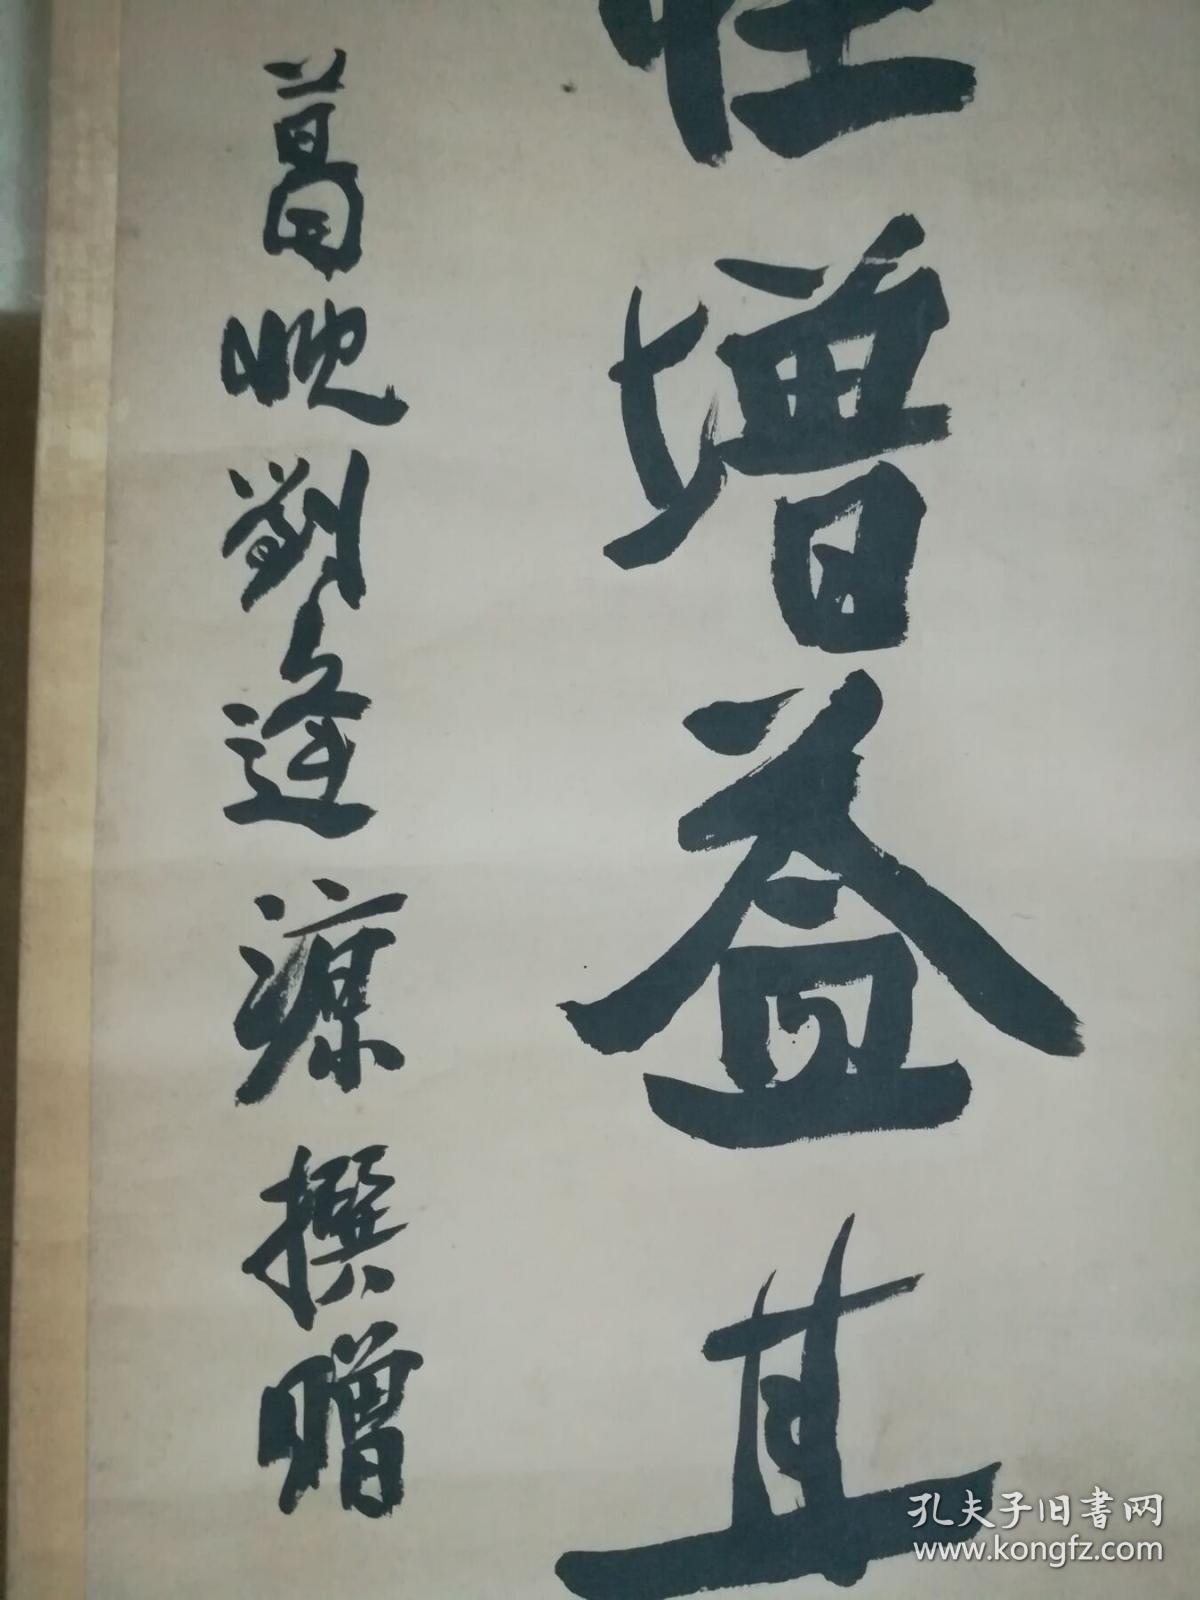 性增益其
晚劉逢源撰贈
孔夫子旧书网
www.kongfz.com